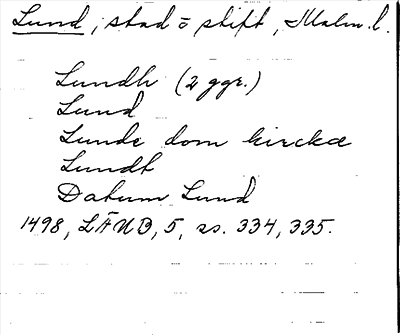 Lund, stad o stift, Malm. l.
Lundh (2 ggr.)
Lund
Lunde dom kircka
Lundt
Datum Lund
1498, LÄUB, 5, ss. 334, 335.